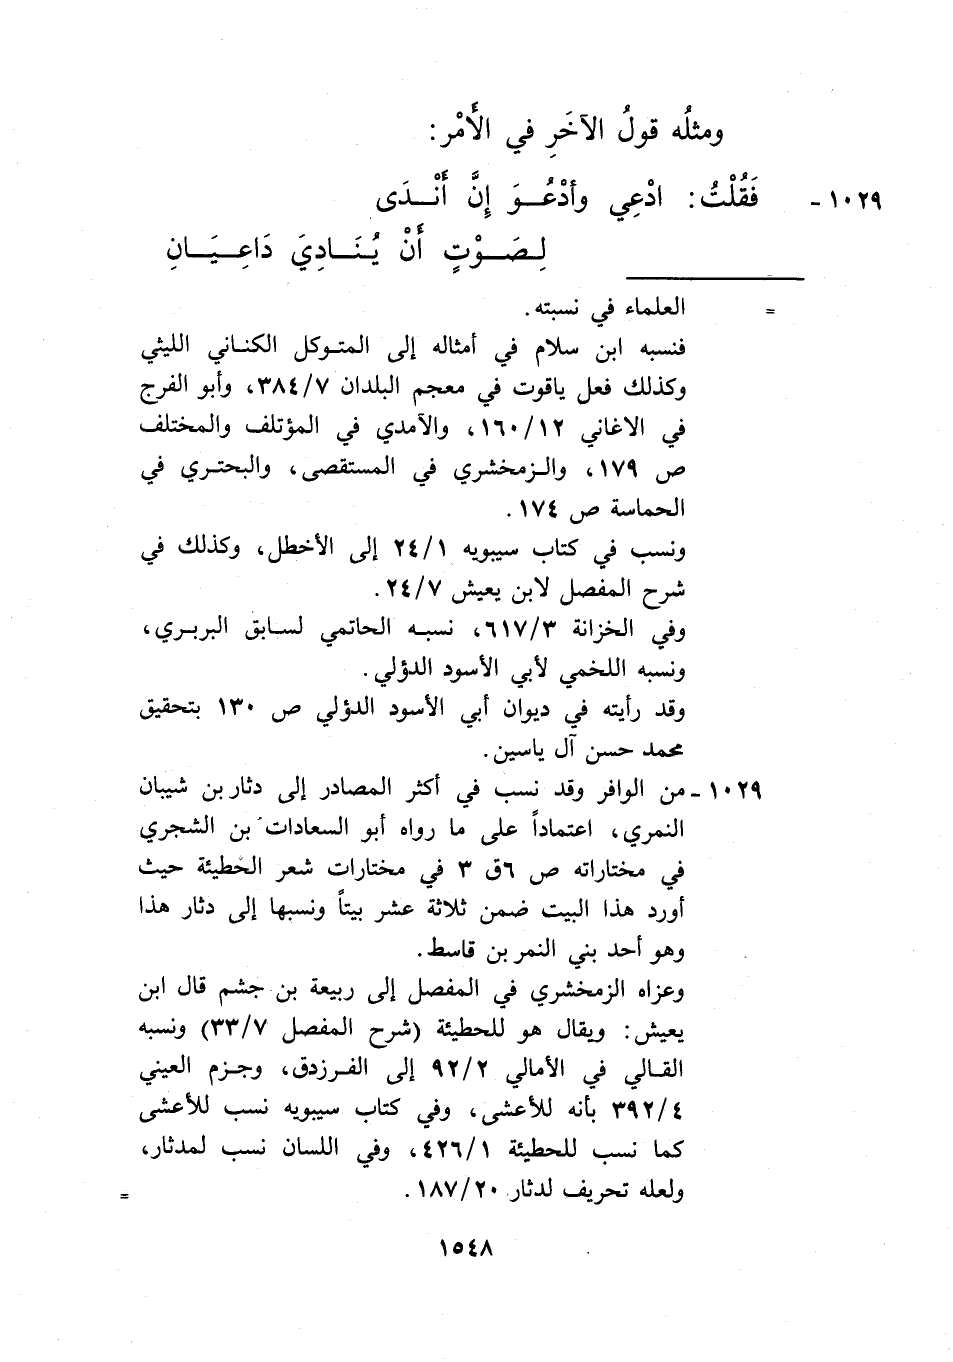 ومثلُه قولُ الآخَرِ في الأَمْر:
١٠٢٩ - فَقُلْتُ: ادْعِي وأدْعُــوَ إِنَّ أَنْــدَى
لِــصَــوْتٍ أَنْ يُنَــادِيَ دَاعِــيَــانِ
= العلماء في نسبته.
فنسبه ابن سلام في أمثاله إلى المتوكل الكناني الليثي
وكذلك فعل ياقوت في معجم البلدان ٣٨٤/٧، وأبو الفرج
في الاغاني ١٦٠/١٢، والآمدي في المؤتلف والمختلف
ص ١٧٩، والزمخشري في المستقصى، والبحتري في
الحماسة ص ١٧٤.
ونسب في كتاب سيبويه ٢٤/١ إلى الأخطل، وكذلك في
شرح المفصل لابن يعيش ٢٤/٧.
وفي الخزانة ٦١٧/٣، نسبه الحاتمي لسابق البربري،
ونسبه اللخمي لأبي الأسود الدؤلي.
وقد رأيته في ديوان أبي الأسود الدؤلي ص ١٣٠ بتحقيق
محمد حسن آل ياسين.
١٠٢٩ - من الوافر وقد نسب في أكثر المصادر إلى دثار بن شيبان
النمري، اعتماداً على ما رواه أبو السعادات بن الشجري
في مختاراته ص ٦ق ٣ في مختارات شعر الحُطيئة حيث
أورد هذا البيت ضمن ثلاثة عشر بيتاً ونسبها إلى دثار هذا
وهو أحد بني النمر بن قاسط.
وعزاه الزمخشري في المفصل إلى ربيعة بن جشم قال ابن
يعيش: ويقال هو للحطيئة (شرح المفصل ٣٣/٧) ونسبه
القالي في الأمالي ٩٢/٢ إلى الفرزدق، وجزم العيني
٣٩٢/٤ بأنه للأعشى، وفي كتاب سيبويه نسب للأعشى
كما نسب للحطيئة ٤٢٦/١، وفي اللسان نسب لمدثار،
ولعله تحريف لدثار ١٨٧/٢٠. =
١٥٤٨